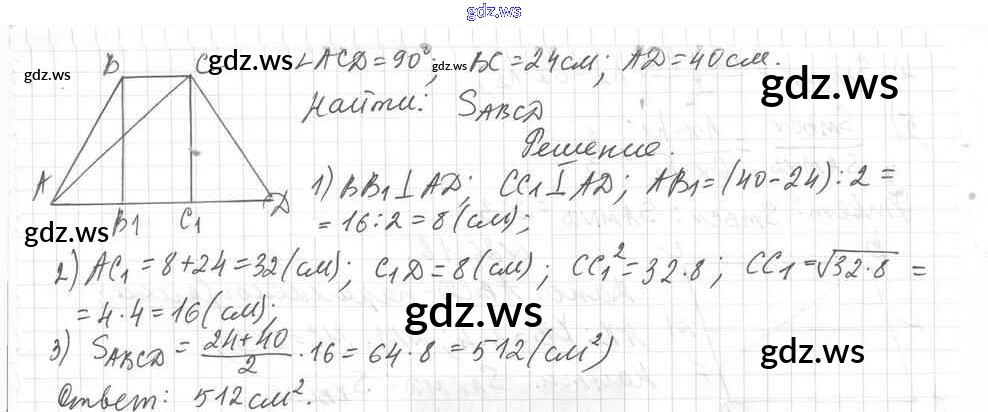 gdz.ws
B C gdz.ws ∠ACD = 90°; gdz.ws BC = 24см; AD = 40см.
gdz.ws
Найти: S_ABCD gdz.ws
Решение.
A D 1) BB₁ ⊥ AD; CC₁ ⊥ AD; AB₁ = (40-24) : 2 =
B₁ C₁ = 16 : 2 = 8 (см);
gdz.ws
2) AC₁ = 8 + 24 = 32 (см); C₁D = 8 (см); CC₁² = 32 · 8; CC₁ = √32 · 8 =
= 4 · 4 = 16 (см);
gdz.ws
3) S_ABCD = (24+40)/2 · 16 = 64 · 8 = 512 (см²) gdz.ws
Ответ: 512 см².